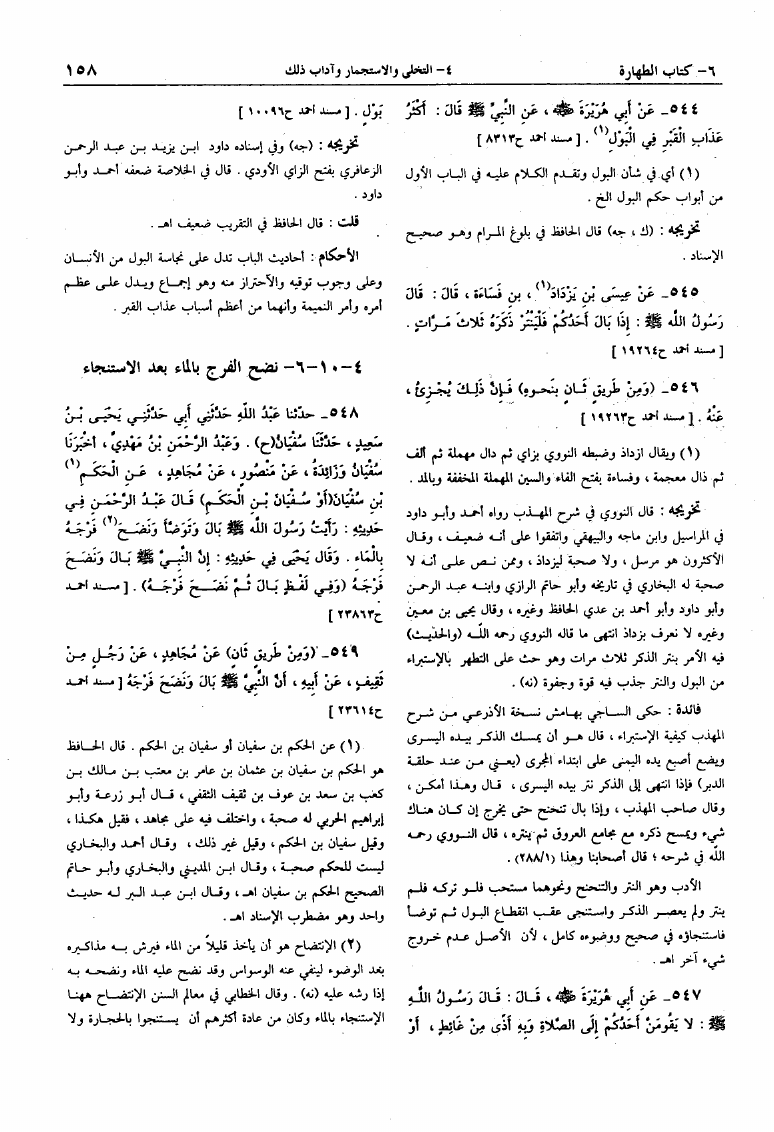 ٦- كتاب الطهارة
٤- التخلي والاستجمار وآداب ذلك
١٥٨
٥٤٤- عَنْ أَبِي هُرَيْرَةَ ﷺ، عَنِ النَّبِيِّ ﷺ قَالَ: أَكْثَرُ
عَذَابِ الْقَبْرِ فِي الْبَوْلِ(١). [مسند أحمد ح٨٣١٣]
(١) أي في شأن البول وتقدم الكلام عليه في الباب الأول
من أبواب حكم البول الخ.
تخريجه: (ك، جه) قال الحافظ في بلوغ المرام وهو صحيح
الإسناد.
٥٤٥- عَنْ عِيسَى بْنِ يَزْدَادَ(١)، بن فَسَاءَة، قَالَ: قَالَ
رَسُولُ الله ﷺ: إِذَا بَالَ أَحَدُكُمْ فَلْيَنْتُرْ ذَكَرَهُ ثَلاثَ مَرَّاتٍ.
[مسند أحمد ح١٩٢٦٤]
٥٤٦- (وَمِنْ طَرِيقٍ ثَانٍ بِنَحوِهِ) فَإِنَّ ذَلِكَ يُجْزِئُ،
عَنْهُ. [مسند أحمد ح١٩٢٦٣]
(١) ويقال ازداذ وضبطه النووي بزاي ثم دال مهملة ثم ألف
ثم ذال معجمة، وفساءة بفتح الفاء والسين المهملة المخففة وبالمد.
تخريجه: قال النووي في شرح المهذب رواه أحمد وأبو داود
في المراسيل وابن ماجه والبيهقي واتفقوا على أنه ضعيف، وقال
الأكثرون هو مرسل، ولا صحبة ليزداذ، وممن نص على أنه لا
صحبة له البخاري في تاريخه وأبو حاتم الرازي وابنه عبد الرحمن
وأبو داود وأبو أحمد بن عدي الحافظ وغيره، وقال يحيى بن معين
وغيره لا نعرف يزداذ انتهى ما قاله النووي رحمه الله (والحديث)
فيه الأمر بنتر الذكر ثلاث مرات وهو حث على التطهر بالإستبراء
من البول والنتر جذب فيه قوة وجفوة (نه).
فائدة: حكى الساجي بهامش نسخة الأذرعي من شرح
المهذب كيفية الإستبراء، قال هو أن يمسك الذكر بيده اليسرى
ويضع أصبع يده اليمنى على ابتداء المجرى (يعني من عند حلقة
الدبر) فإذا انتهى إلى الذكر نتر بيده اليسرى، قال وهذا أمكن،
وقال صاحب المهذب، وإذا بال تنحنح حتى يخرج إن كان هناك
شيء ويمسح ذكره مع مجامع العروق ثم ينتره، قال النووي رحمه
الله في شرحه؛ قال أصحابنا وهذا (٢٨٨/١).
الأدب وهو النتر والتنحنح ونحوهما مستحب فلو تركه فلم
ينتر ولم يعصر الذكر واستنجى عقب انقطاع البول ثم توضأ
فاستنجاؤه في صحيح ووضوءه كامل، لأن الأصل عدم خروج
شيء آخر اهـ.
٥٤٧- عَنِ أَبِي هُرَيْرَةَ ﷺ، قَالَ: قَالَ رَسُولُ اللهِ
ﷺ: لا يَقُومَنَّ أَحَدُكُمْ إِلَى الصَّلاةِ وَبِهِ أَذًى مِنْ غَائِطٍ، أَوْ
بَوْلٍ. [مسند أحمد ح١٠٠٩٦]
تخريجه: (جه) وفي إسناده داود ابن يزيد بن عبد الرحمن
الزعافري بفتح الزاي الأودي. قال في الخلاصة ضعفه أحمد وأبو
داود.
قلت: قال الحافظ في التقريب ضعيف اهـ.
الأحكام: أحاديث الباب تدل على نجاسة البول من الأنسان
وعلى وجوب توقيه والاحتراز منه وهو إجماع ويدل على عظم
أمره وأمر النميمة وأنهما من أعظم أسباب عذاب القبر.
٤-١٠-٦- نضح الفرج بالماء بعد الاستنجاء
٥٤٨- حدثنا عَبْدُ اللهِ حَدَّثَنِي أَبِي حَدَّثَنِي يَحْيَى بْنُ
سَعِيدٍ، حَدَّثَنَا سُفْيَانُ(ح). وَعَبْدُ الرَّحْمَنِ بْنُ مَهْدِيٍّ، أَخْبَرَنَا
سُفْيَانُ وَزَائِدَةُ، عَنْ مَنْصُورٍ، عَنْ مُجَاهِدٍ، عَنِ الْحَكَمِ(١)
بْنِ سُفْيَانَ(أَوْ سُفْيَانَ بْنِ الْحَكَمِ) قَالَ عَبْدُ الرَّحْمَنِ فِي
حَدِيثِهِ: رَأَيْتُ رَسُولَ اللهِ ﷺ بَالَ وَتَوَضَّأَ وَنَضَحَ(٢) فَرْجَهُ
بِالْمَاءِ. وَقَالَ يَحْيَى فِي حَدِيثِهِ: إِنَّ النَّبِيَّ ﷺ بَالَ وَنَضَحَ
فَرْجَهُ (وَفِي لَفْظٍ بَالَ ثُمَّ نَضَحَ فَرْجَهُ). [مسند أحمد
ح٢٣٨٦٣]
٥٤٩- (وَمِنْ طَرِيقٍ ثَانٍ) عَنْ مُجَاهِدٍ، عَنْ رَجُلٍ مِنْ
ثَقِيفٍ، عَنْ أَبِيهِ، أَنَّ النَّبِيَّ ﷺ بَالَ وَنَضَحَ فَرْجَهُ [مسند أحمد
ح٢٣٦١٤]
(١) عن الحكم بن سفيان أو سفيان بن الحكم. قال الحافظ
هو الحكم بن سفيان بن عثمان بن عامر بن معتب بن مالك بن
كعب بن سعد بن عوف بن ثقيف الثقفي، قال أبو زرعة وأبو
إبراهيم الحربي له صحبة، واختلف فيه على مجاهد، فقيل هكذا،
وقيل سفيان بن الحكم، وقيل غير ذلك، وقال أحمد والبخاري
ليست للحكم صحبة، وقال ابن المديني والبخاري وأبو حاتم
الصحيح الحكم بن سفيان اهـ، وقال ابن عبد البر له حديث
واحد وهو مضطرب الإسناد اهـ.
(٢) الإنتضاح هو أن يأخذ قليلاً من الماء فيرش به مذاكيره
بعد الوضوء لينفي عنه الوسواس وقد نضح عليه الماء ونضحه به
إذا رشه عليه (نه). وقال الخطابي في معالم السنن الإنتضاح ههنا
الإستنجاء بالماء وكان من عادة أكثرهم أن يستنجوا بالحجارة ولا